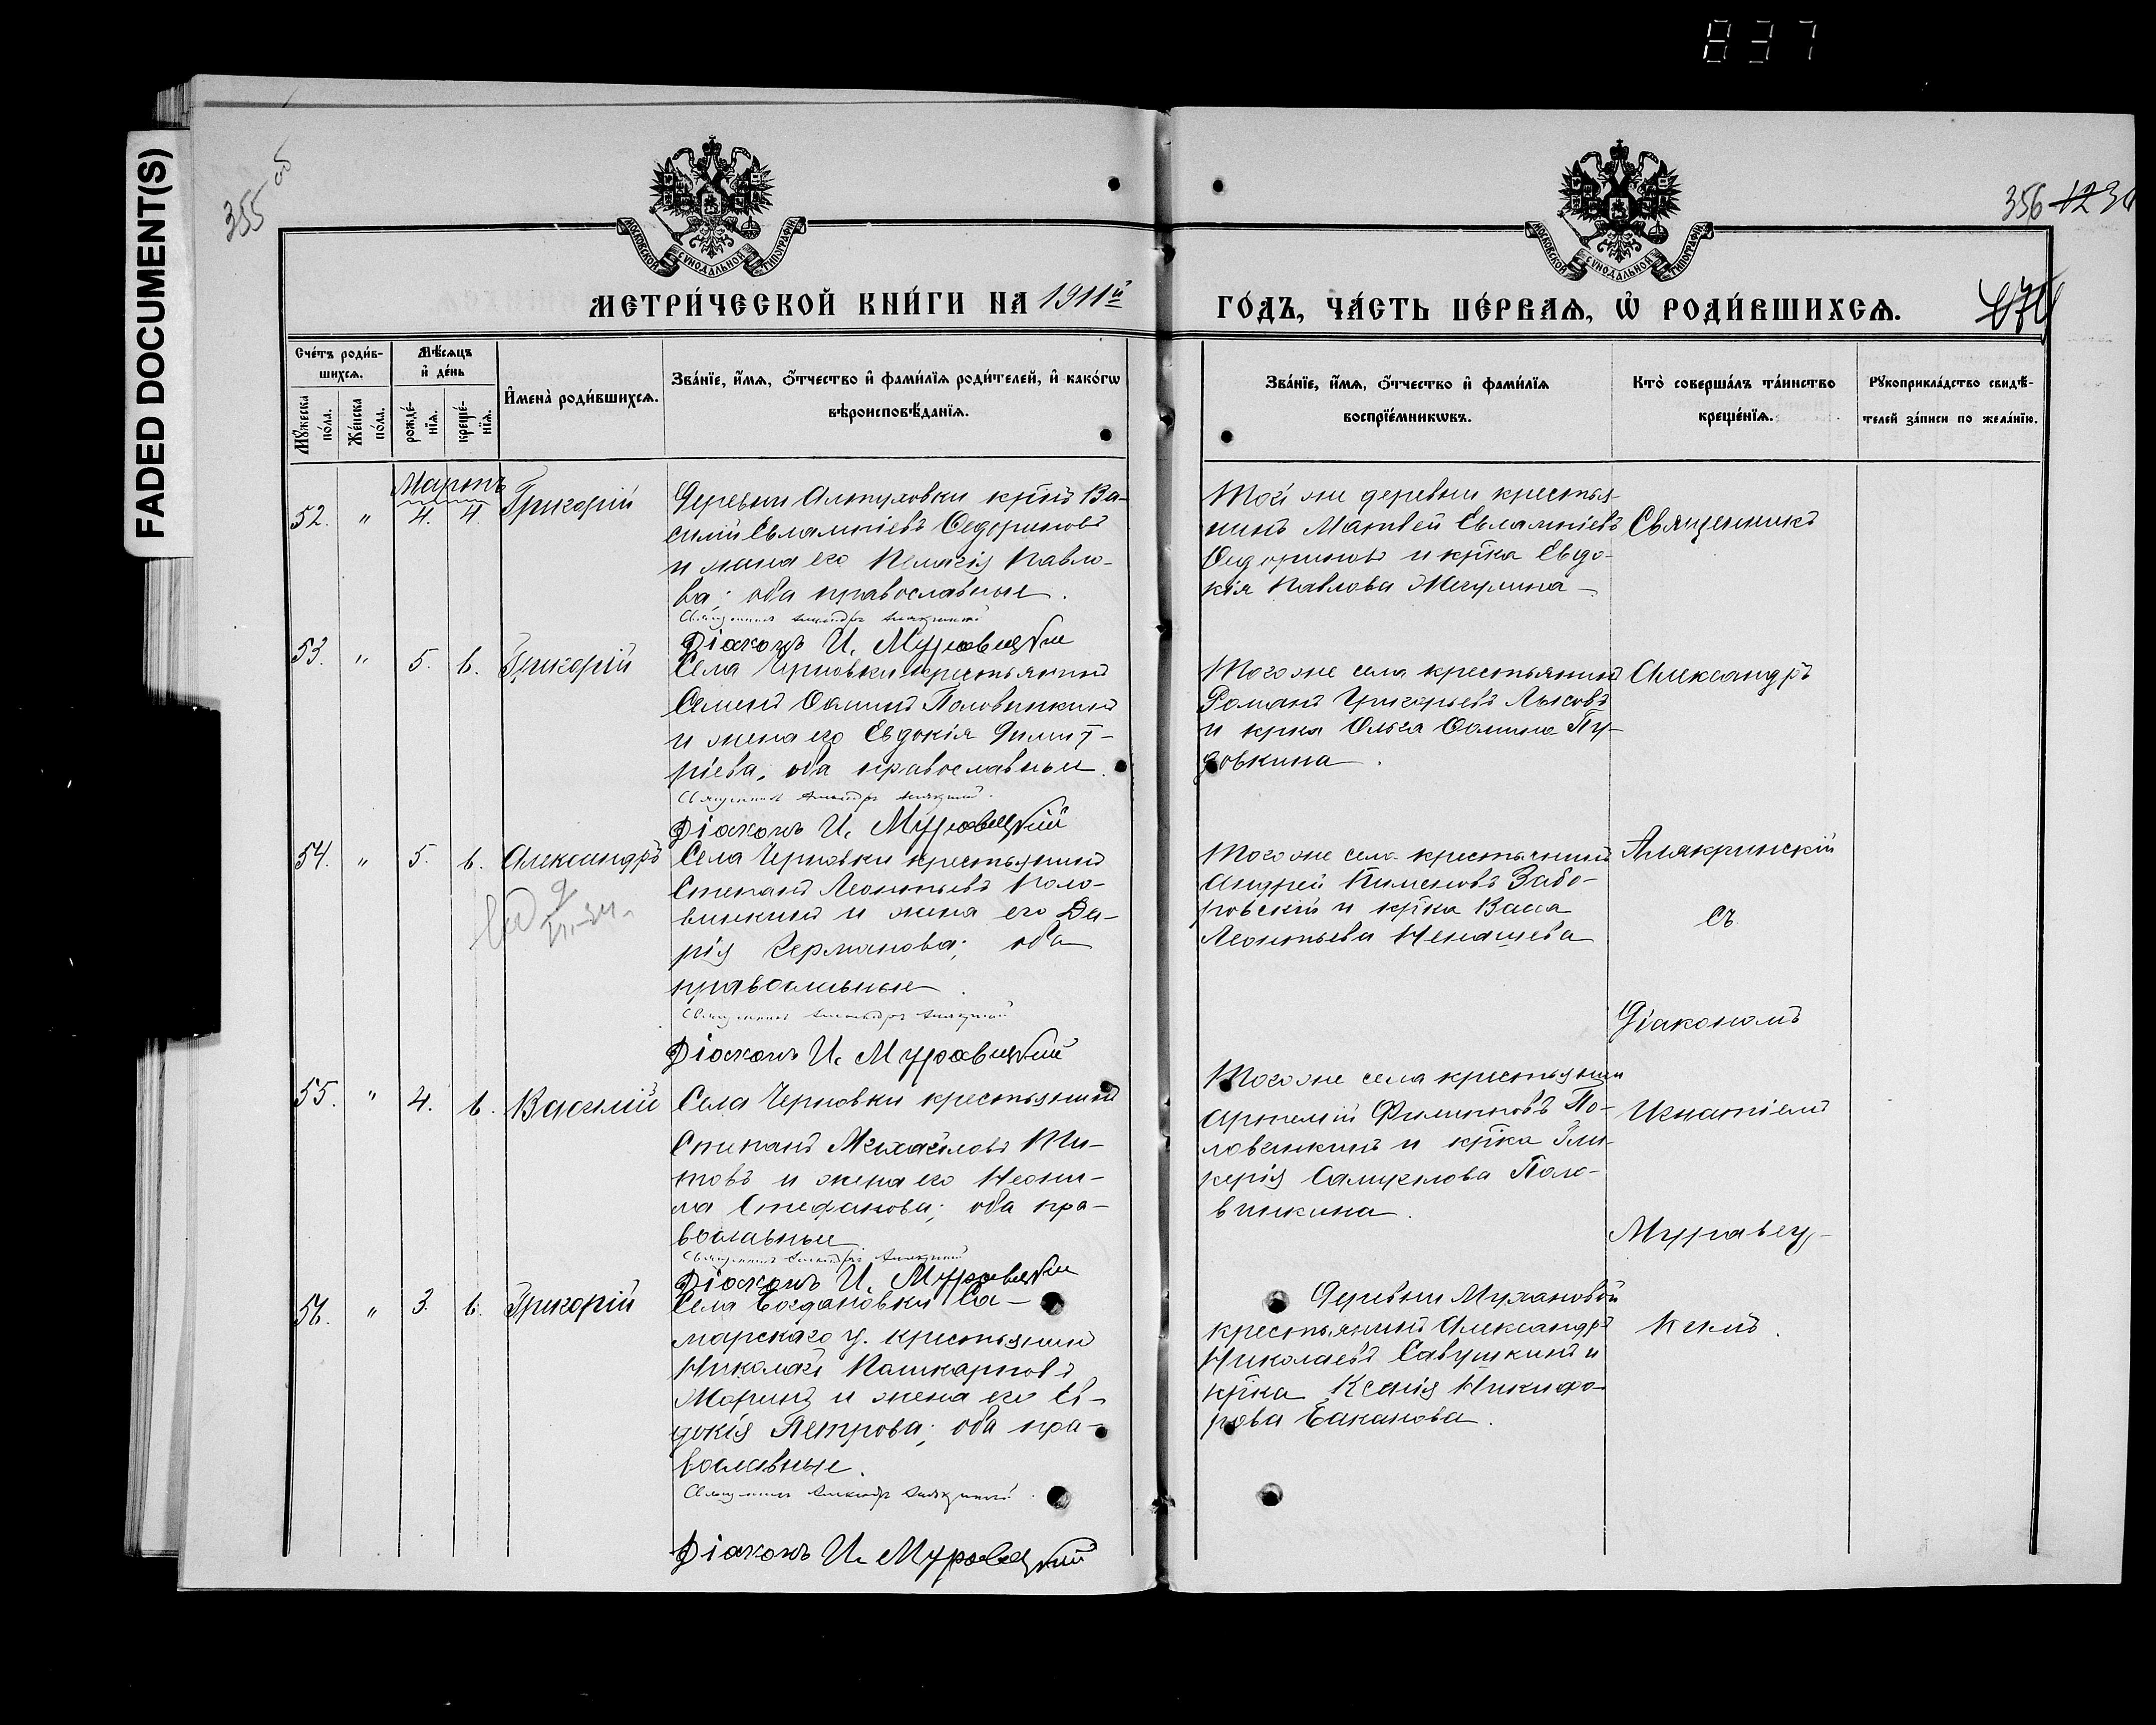 837
FADED DOCUMENT(S)
355 об
356 1234
МОСКОВСКОЙ СѴНОДАЛЬНОЙ ТИПОГРАФІИ
МОСКОВСКОЙ СѴНОДАЛЬНОЙ ТИПОГРАФІИ
МЕТРИ́ЧЕСКОЙ КНИ́ГИ НА 1911й
ГО́ДЪ, ЧА́СТЬ ПЕ́РВАѦ, Ѽ РОДИ́ВШИХСѦ.
Сче́тъ роди́в-
шихсѧ.
Мѣ́сѧцъ
и҆ де́нь
Мꙋ́жеска
по́ла.
Же́нска
по́ла.
рожде́-
нїѧ.
креще́-
нїѧ.
И҆мена̀ роди́вшихсѧ.
Зва́нїе, и҆́мѧ, ѻ҆́тчество и҆ фами́лїѧ роди́телей, и҆ како́гѡ
вѣроисповѣ́данїѧ.
Зва́нїе, и҆́мѧ, ѻ҆́тчество и҆ фами́лїѧ
воспрїе́мникѡвъ.
Кто̀ соверша́лъ та́инство
креще́нїѧ.
Рꙋкоприкла́дство свидѣ́-
телей за́писи по жела́нїю.
Мартъ
52. " 4. 4. Григорій
Деревни Алтуховки кр͠нинъ Ва-
силій Евлампіевъ Ѳедориновъ
и жена его Пелагія Павло-
ва; оба православные.
Священникъ Александръ
Діаконъ И. Муравецкій
Той же деревни крестья-
нинъ Матвей Евлампіевъ
Ѳедориновъ и кр͠нка Евдо-
кія Павлова Мечулина
Священникъ
53. " 5. 6. Григорій
Села Черновки крестьянинъ
Семенъ Ѳоминъ Половинкинъ
и жена его Евдокія Димит-
ріева; оба православные.
Священникъ Александръ
Діаконъ И. Муравецкій
Того же села крестьянинъ
Романъ Григорьевъ Лысовъ
и кр͠нка Ольга Ѳомина Пу-
довкина.
Александръ
54. " 5. 6. Александръ
Села Черновки крестьянинъ
Степанъ Леонтьевъ Поло-
винкинъ и жена его Да-
рія Германова; оба
православные.
Священникъ Александръ
Діаконъ И. Муравецкій
Того же села крестьянинъ
Андрей Пименовъ Забо-
ровскій и кр͠нка Васса
Леонтьева Ненашева
Алякринскій
съ
Діакономъ
55. " 4. 6. Василій
Села Черновки крестьянинъ
Степанъ Михайловъ Ти-
товъ и жена его Неони-
ла Стефанова; оба пра-
вославные
Священникъ Александръ
Діаконъ И. Муравецкій
Того же села крестьянинъ
Артемій Филипповъ По-
ловинкинъ и кр͠нка Гли-
керія Самуилова Поло-
винкина.
Игнатіемъ
Муравец-
56. " 3. 6. Григорій
Села Богдановки Са-
марскаго у. крестьянинъ
Николай
Моринъ и жена его Ев-
докія Петрова; оба пра-
вославные.
Священникъ Александръ
Діаконъ И. Муравецкій
Деревни Мухановой
крестьянинъ Александръ
Николаевъ Савушкинъ и
кр͠нка Ксенія Никифо-
рова Баканова.
кимъ.